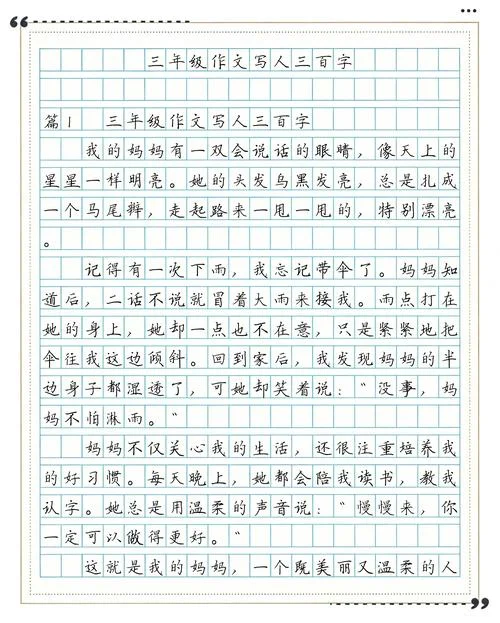 三年级作文写人三百字
篇1 三年级作文写人三百字
我的妈妈有一双会说话的眼睛，像天上的
星星一样明亮。她的头发乌黑发亮，总是扎成
一个马尾辫，走起路来一甩一甩的，特别漂亮
。
记得有一次下雨，我忘记带伞了。妈妈知
道后，二话不说就冒着大雨来接我。雨点打在
她的身上，她却一点也不在意，只是紧紧地把
伞往我这边倾斜。回到家后，我发现妈妈的半
边身子都湿透了，可她却笑着说："没事，妈
妈不怕淋雨。"
妈妈不仅关心我的生活，还很注重培养我
的好习惯。每天晚上，她都会陪我读书，教我
认字。她总是用温柔的声音说："慢慢来，你
一定可以做得更好。"
这就是我的妈妈，一个既美丽又温柔的人